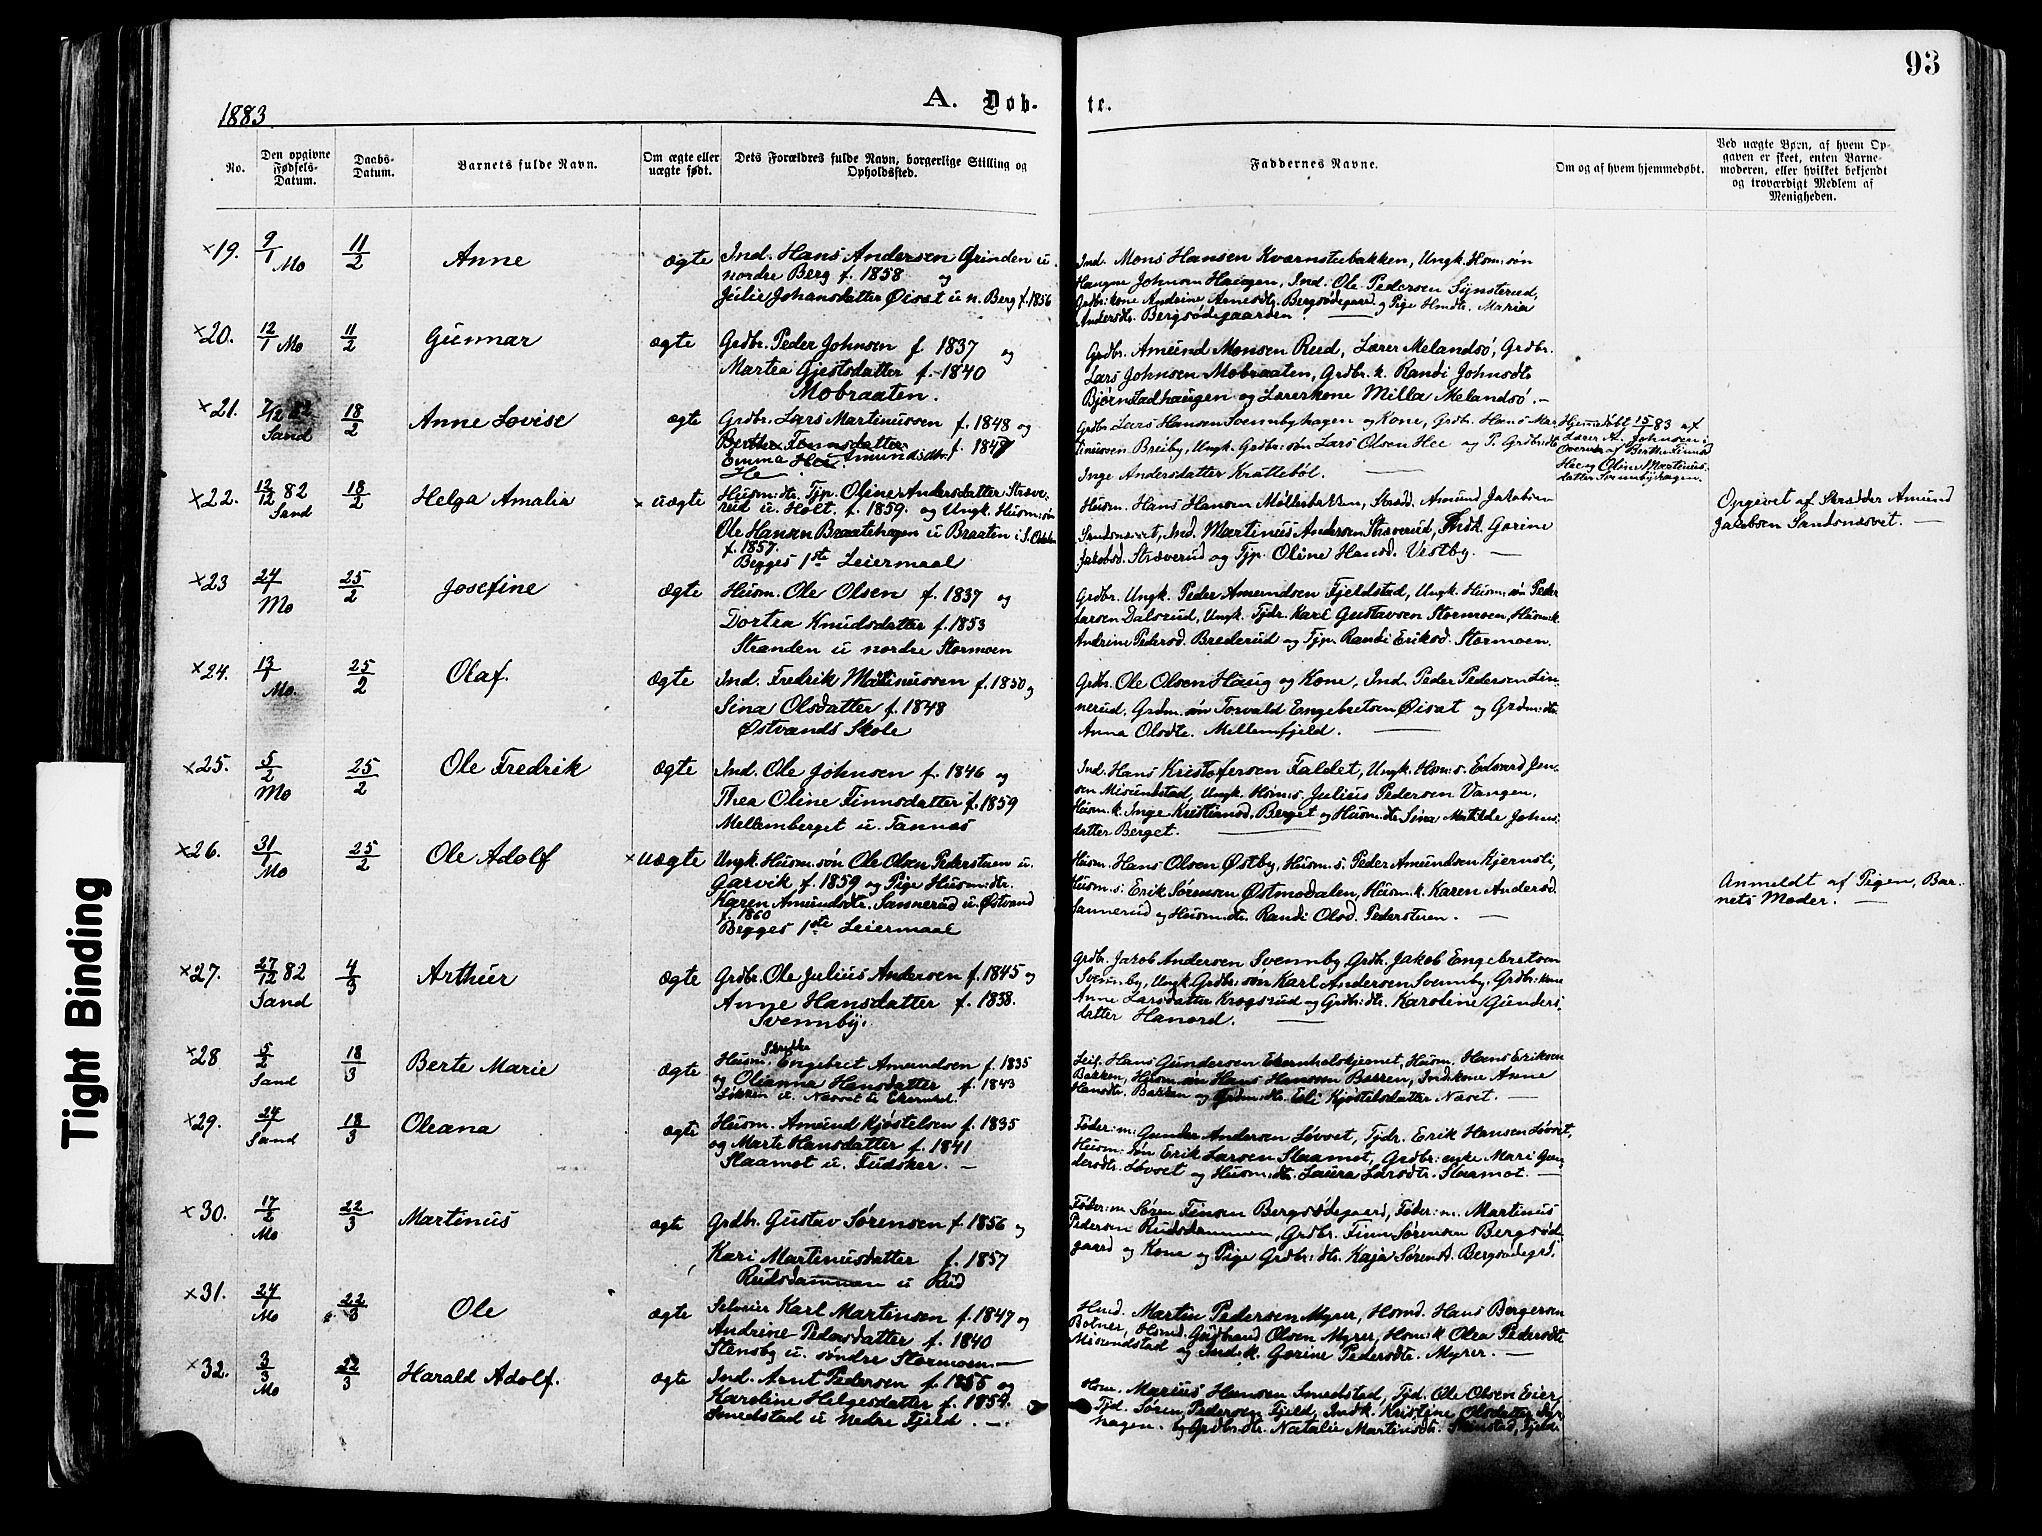 93
A. Døb-
te.
1883
No.
Den opgivne Fødsels-Datum.
Daabs-Datum.
Barnets fulde Navn.
Om ægte eller uægte født.
Dets Forældres fulde Navn, borgerlige Stilling og Opholdssted.
Faddernes Navne.
Om og af hvem hjemmedøbt.
Ved uægte Børn, af hvem Op-
gaven er skeet, enten Barne-
moderen, eller hvilket bekjendt
og troværdigt Medlem af
Menigheden.
×19. 9/1 Mo 11/2 Anne ægte Ind. Hans Andersen Grinden u.
nordre Berg f. 1858 og
Julie Johansdatter Øiset u n. Berg f. 1856
Ind. Mons Hansen Kværnstubakken, Ungk. Hsm:søn
Haagne Johnsen Haugen, Ind. Ole Pedersen Synsterud,
Grdbr:kone Andrine Arnesdtr. Bergsødegaard og Pige Hmdt. Maria
Andersdtr. Bergsødegaarden.
×20. 12/1 Mo 11/2 Gunnar ægte Grdbr. Peder Johnsen f. 1837 og
Martea Gjestsdatter f. 1840
Mobraaten.
Grdbr. Amund Monsen Rud, Lærer Melandsø, Grdbr.
Lars Johnsen Mobraaten, Grdbr. k. Randi Johnsdtr
Bjørnstadhaugen og Lærerkone Milla Melandsø. –
×21. 7/12 82 Sand 18/2 Anne Lovise ægte Grdbr. Lars Martinussen f. 1848 og
Berthe Finnsdatter f. 1847
Emma Hee Amundsdtr.
He
Grdbr. Lars Hansen Svennbyhagen og Kone, Grdbr. Hans Mar
tinussen Breiby, Ungk. Grdbr:søn Lars Olsen Hee og P. Grdbr:dtr
Inge Andersdatter Kratteböl.
Hjemmedøbt 15/1 83 af
Lærer A. Johnsen i
Overvær af Berthe Finnsd
Hee og Oline Martinus-
datter Svennbyhagen.
×22. 12/12 82 Sand 18/2 Helga Amalia × uægte Husm:dtr. Tjp. Oline Andersdatter Stræve-
rud u. Holt. f. 1859. og Ungk. Husm:søn
Ole Hansen Braatehagen u Braaten i S. Odalen
f. 1857.
Begges 1ste Leiermaal
Husm. Hans Hansen Möllerbakken, Skrædd. Amund Jakobsen
Sandsnæsset, Ind. Martinus Andersen Stræverud, Indk. Gorine
Jakobsd. Stræverud og Tjp. Oline Hansd. Vestby. –
Opgivet af Skrædder Amund
Jacobsen Sandsnæsset. –
×23 24/1 Mo 25/2 Josefine ægte Husm. Ole Olsen f. 1837 og
Dortea Knudsdatter f. 1853
Stranden u nordre Stormoen
Grdbr. Ungk. Peder Amundsen Fjeldstad, Ungk. Husm:søn Peder
Larsen Dalsrud, Ungk. Tjdr. Karl Gustavsen Stormoen, Husm:k.
Andrine Pedersd. Brederud og Tjp. Randi Eriksd. Stormoen.
×24. 13/1 Mo. 25/2 Olaf. ægte Ind. Fredrik Martinussen f. 1850 og
Sina Olsdatter f. 1848
Østvands Skole
Grdbr. Ole Olsen Haug og Kone, Ind. Peder Pedersen Lin-
nerud. Grdm. søn Torvald Engebretsen Øiset og Grdm:dtr.
Anna Olsdtr. Mellemfjeld.
×25. 5/2 Mo 25/2 Ole Fredrik ægte Ind. Ole Johnsen f. 1846 og
Thea Oline Finnsdatter f. 1859
Mellemberget u. Tannæs
Ind. Hans Kristofersen Faldet, Ungk. Hsm:s. Edvard Jen-
sen Misundstad, Ungk. Hsm:s. Julius Pedersen Vangen,
Husm. k. Inge Kristiansd. Berget og Husm:dtr. Sina Matilde Johns-
datter Berget.
×26. 31/1 Mo 25/2 Ole Adolf × uægte Ungk. Husm:søn Ole Olsen Pederstuen u.
Garvik f. 1859 og Pige Husm:dtr.
Karen Amundsdtr. Sannerud u. Østvand
f. 1860
Begges 1ste Leiermaal
Husm. Hans Olsen Østby, Husm:s. Peder Amundsen Kjernsli,
Husm:s: Erik Sørensen Østmodalen, Husm. k. Karen Andersd.
Sannerud og Husm:dtr. Randi Olsd. Pederstuen. –
Anmeldt af Pigen, Bar-
nets Moder. –
×27. 27/12 82 Sand 4/3 Arthur ægte Grdbr. Ole Julius Andersen f. 1845 og
Anne Hansdatter f. 1838.
Svennby.
Grdbr. Jakob Andersen Svennby, Grdb. Jakob Engebretsen
Svennby, Ungk. Grdbr:søn Karl Andersen Svennby, Grdbr:kone
Anne Larsdatter Krogsrud og Grdbr:dtr. Karoline Gunders-
datter Hanerd.
×28 5/2 Sand 18/3 Berte Marie ægte Husm. Engebret Amundsen f. 1835
og Olianna Hansdatter f. 1843
Løkken u. Næsset u Ekernhol.
Leif. Hans Gundersen Ekernholskjernet, Husm. Hans Eriksen
Bakken, Husm:søn Hans Hansen Bakken, Ind:kone Anne
Hansdtr. Bakken og Grdm:dtr. Eli Kjøstelsdatter Næset. –
×29. 24/1 Sand 18/3 Oleana ægte Husm. Amund Kjøstelsen f. 1835
og Marte Hansdatter f. 1841
Slaamot u. Fudsker. –
Føder:m: Gunder Andersen Løvset, Tjdr. Erik Hansen Løvset,
Husm:søn Erik Larsen Slaamot, Grdbr:enke Mari Gun-
dersdtr. Løvset og Husm:dtr. Laura Larsdtr. Slaamot. –
×30. 17/2 Mo 22/3 Martinus ægte Grdbr. Gustav Sørensen f. 1856 og
Kari Martinusdatter f. 1857
Rudsdammen u Rud
Føder:m Søren Finsen Bergsødegaard, Føder:m: Martinus
Pedersen Rudsdammen, Grdbr. Finn Sørensen Bergsøde
gaard og Kone og Pige Grdbr:dtr. Kaja Sørensd. Bergsødegrd.
×31. 24/1 Mo 22/3 Ole ægte Selveier Karl Martinsen f. 1847 og
Andrine Pedersdatter f. 1840
Stensby u. søndre Stormoen. –
Hmd. Martin Pedersen Myrer, Hsmd. Hans Bergersen
Botner, Hsmd. Gudbrand Olsen Myrer, Hsm:k Olea Pedersdtr.
Misundstad og Ind. k. Gorine Pedersdtr. Myrer. –
×32. 3/3 Mo 22/3 Harald Adolf. ægte Ind. Arnt Pedersen f. 1855 og
Karoline Helgesdatter f. 1854.
Smedstad u Nedre Fjeld. –
Hsm. Marius Hansen Smedstad, Tjd. Ole Olsen Eier,
Tjd. Søren Pedersen Fjeld, Indk. Kristine Olsdatter
hagen. og Grdbr:dtr. Natalie Martinsdtr. Fjeld
Tight Binding